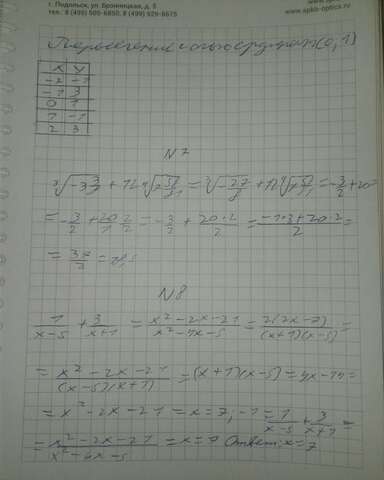 г. Подольск, ул. Бронницкая, д. 5
тел.: 8 (499) 505-6850, 8 (499) 929-6675
www.apkb-optics.ru
Пересечение с осью ординат (0, 1)
x y
-2 -1
-1 3
0 1
1 -1
2 3
N7
= -3/2 + 20/1 2/2 = -3/2 + 20·2/2 = -1·3+20·2/2 =
= 37/2 = 18,5
N8
1/x-5 + 3/x+1 = x²-2x-21/x²-4x-5 = 2(2x-7)/(x+1)(x-5) =
= x²-2x-21/(x-5)(x+1) = (x+1)(x-5) = 4x-14 =
= x²-2x-21 = x=7; -1 = 1/x-5 + 3/x+1 =
= x²-2x-21/x²-4x-5 = x=7 Ответ: x=7